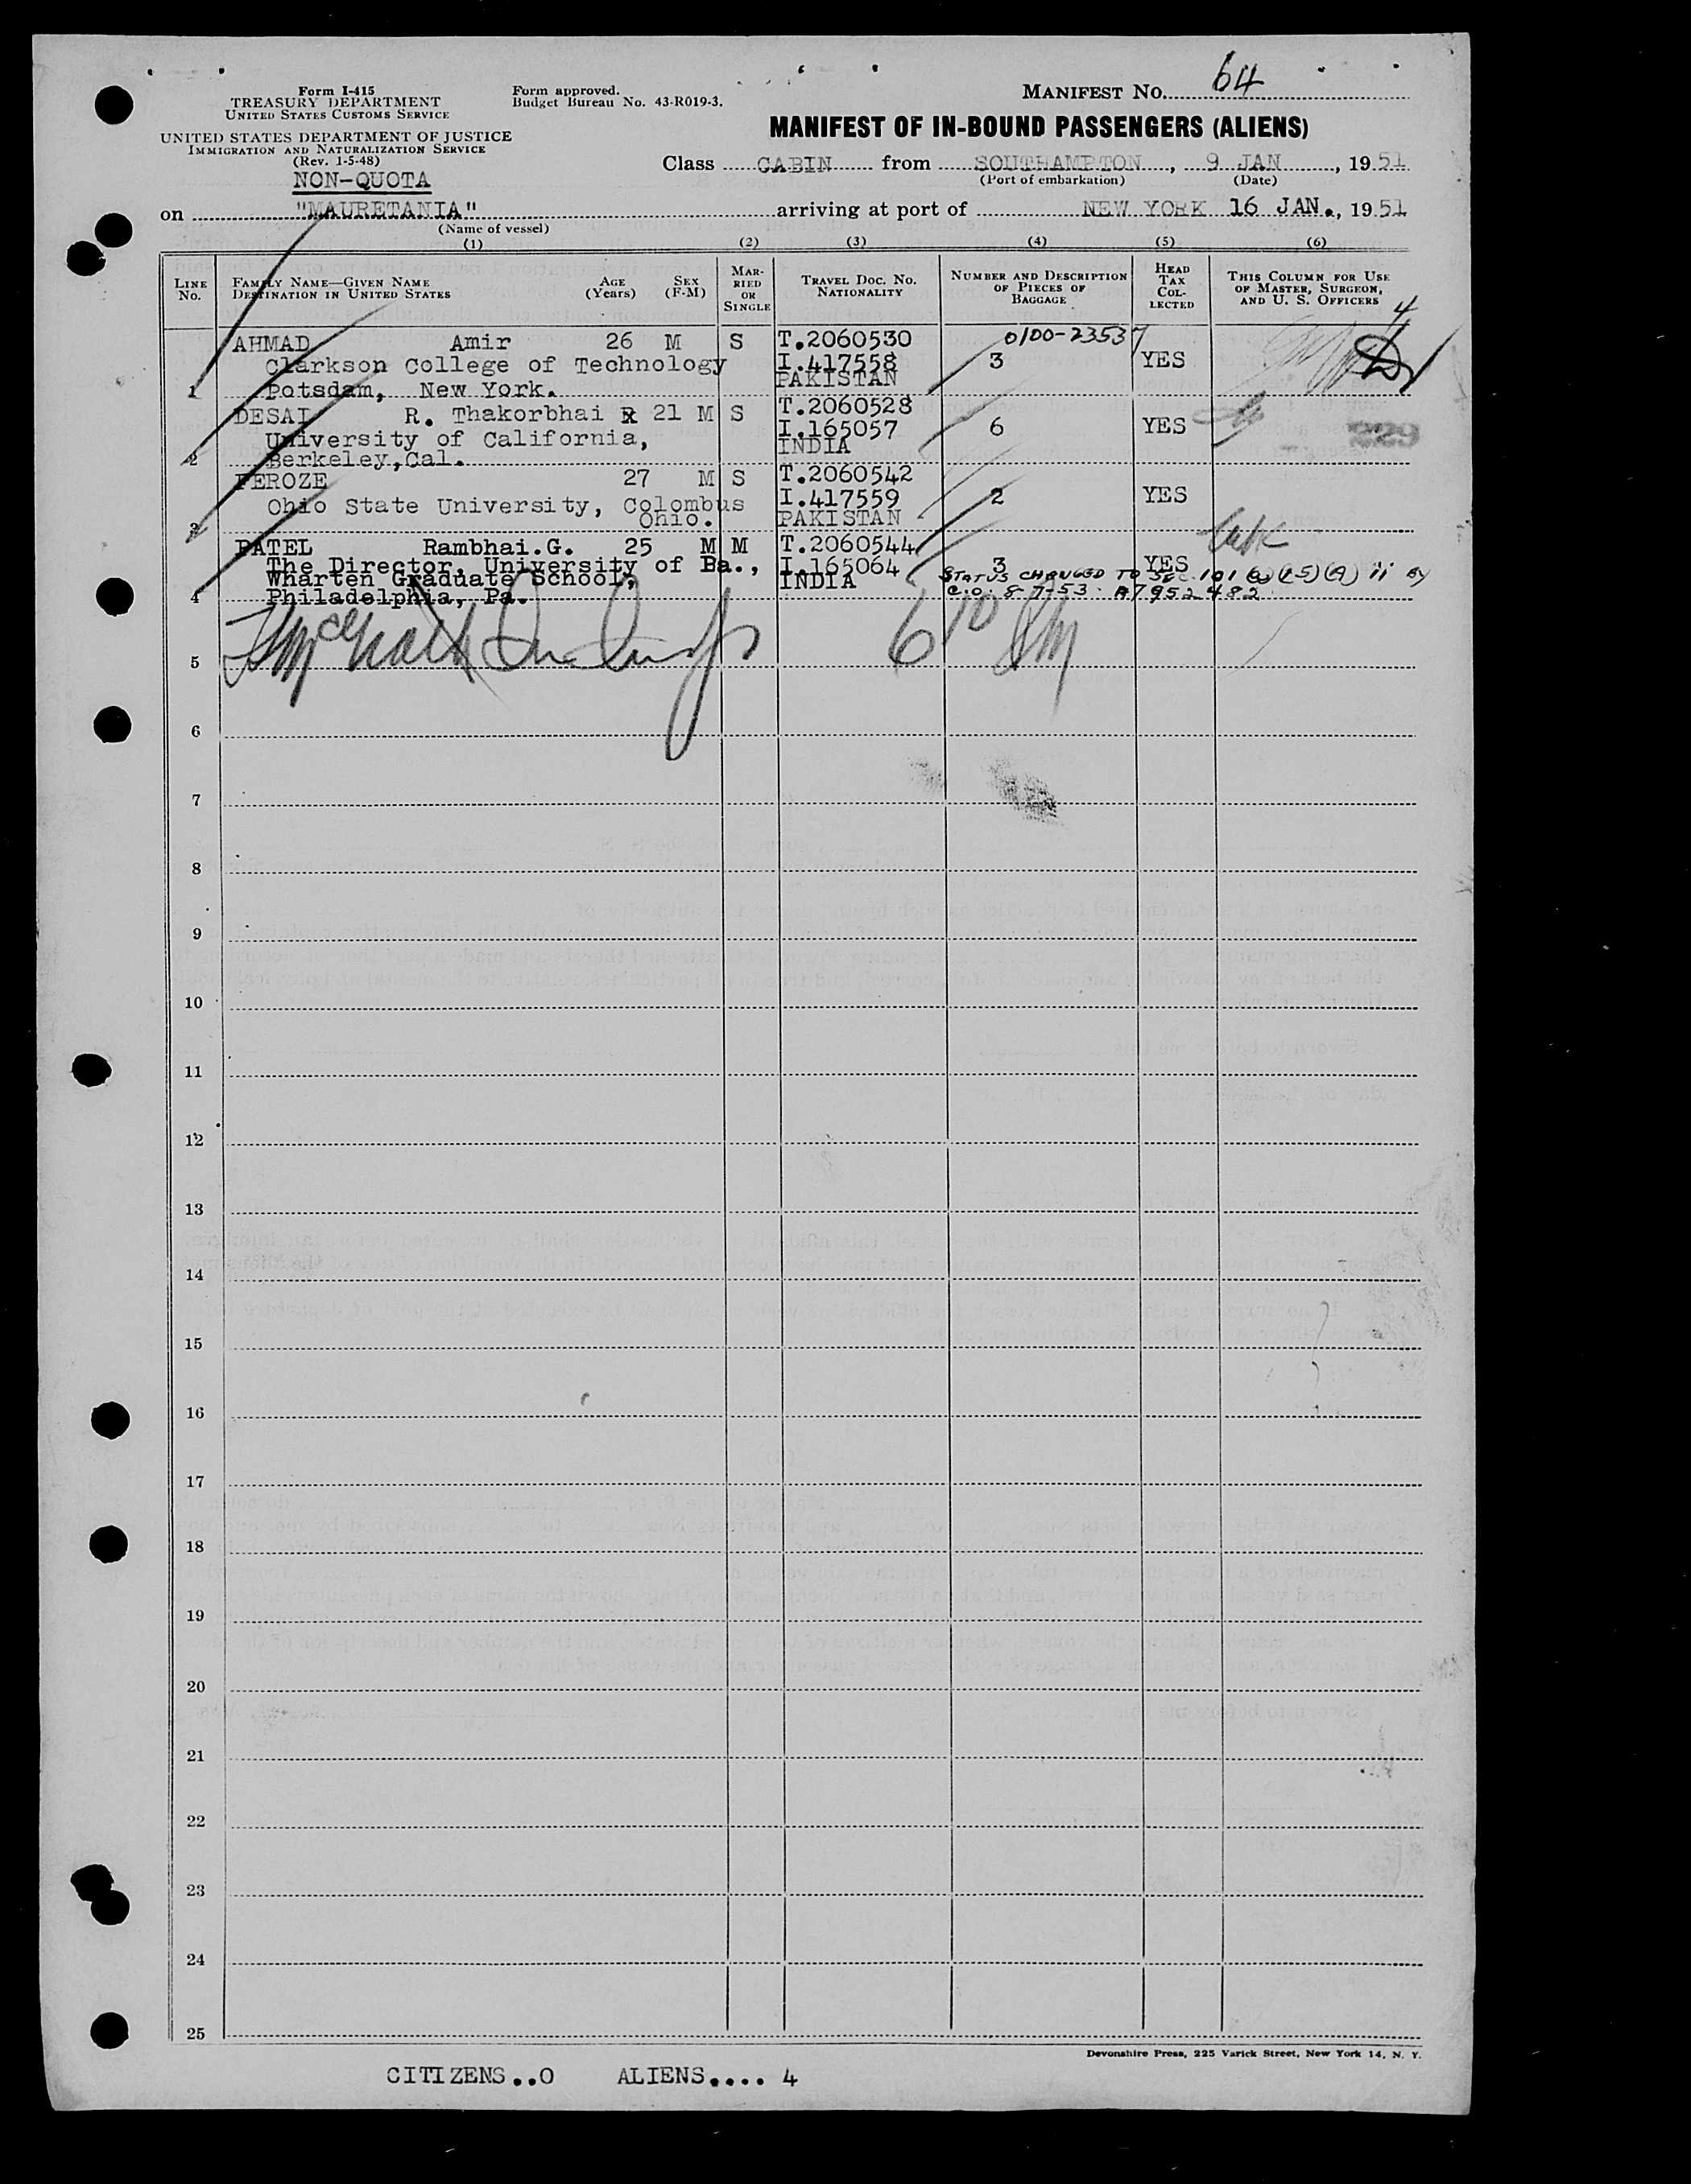 Form I-415
TREASURY DEPARTMENT
UNITED STATES CUSTOMS SERVICE
UNITED STATES DEPARTMENT OF JUSTICE
IMMIGRATION AND NATURALIZATION SERVICE
(Rev. 1-5-48)
NON-QUOTA
Form approved.
Budget Bureau No. 43-R019-3.
MANIFEST No. 64
MANIFEST OF IN-BOUND PASSENGERS (ALIENS)
Class CABIN from SOUTHAMPTON, 9 JAN, 1951
(Port of embarkation) (Date)
on "MAURETANIA" arriving at port of NEW YORK 16 JAN., 1951
(Name of vessel)
(1) (2) (3) (4) (5) (6)
LINE No. FAMILY NAME—GIVEN NAME DESTINATION IN UNITED STATES AGE (Years) SEX (F-M) MARRIED OR SINGLE TRAVEL DOC. NO. NATIONALITY NUMBER AND DESCRIPTION OF PIECES OF BAGGAGE HEAD TAX COLLECTED THIS COLUMN FOR USE OF MASTER, SURGEON, AND U. S. OFFICERS
4
AHMAD Amir 26 M S T.2060530 0100-23537
Clarkson College of Technology I.417558 3 YES
1 Potsdam, New York. PAKISTAN
DESAI R. Thakorbhai R 21 M S T.2060528
University of California, I.165057 6 YES 229
2 Berkeley,Cal. INDIA
FEROZE 27 M S T.2060542
Ohio State University, Colombus I.417559 2 YES
3 Ohio. PAKISTAN
PATEL Rambhai.G. 25 M M T.2060544
The Director, University of Pa., I.165064 3 YES
Wharten Graduate School, INDIA STATUS CHANGED TO SEC. 101 (a)(15)(A) ii BY
4 Philadelphia, Pa. C.O. 8-7-53. A7952482
5
6
7
8
9
10
11
12
13
14
15
16
17
18
19
20
21
22
23
24
25
Devonshire Press, 225 Varick Street, New York 14, N. Y.
CITIZENS..0 ALIENS.... 4